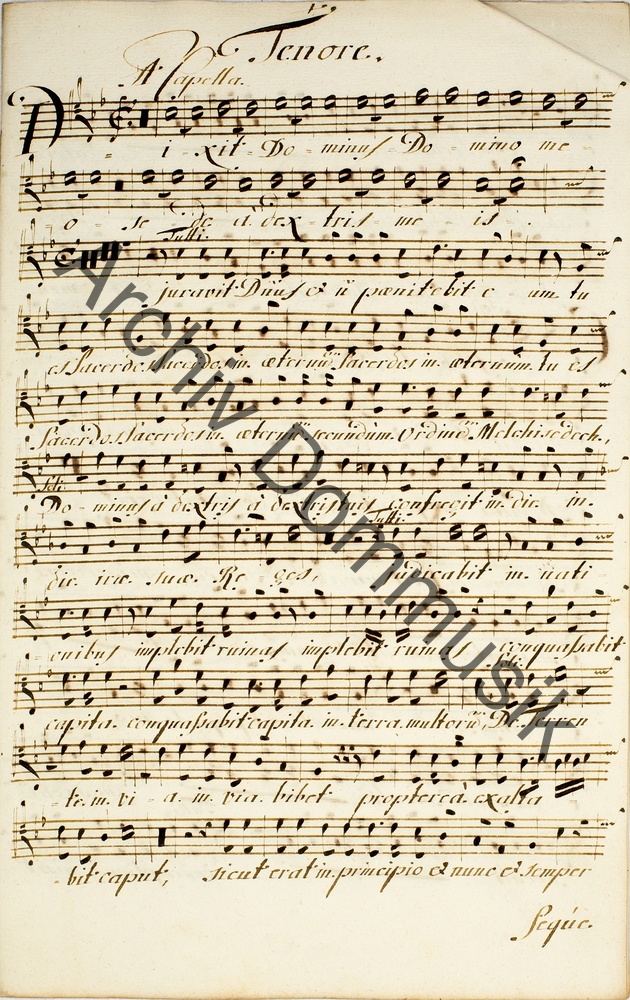 Tenore.
A Capella.
Dixit Dominus Domino me
o sede a dextris me is.
Tutti.
juravit Dnus et n pœnitebit e um tu
es Sacerdos Sacerdos in æternũ Sacerdos in æternum. tu es
Sacerdos Sacerdos in æternũ secundùm Ordinẽ Melchisedech,
Soli.
Dominus à dextris à dextris tuis confregit in die in
Tutti.
die iræ suæ Reges, judicabit in nati
onibus implebit ruinas implebit ruinas conquassabit
Soli.
capita conquassabit capita in terra multorũ, De torren
te in via in via bibet proptereà exalta
bit caput, sicut erat in principio et nunc et semper
Seque.
Archiv Dommusik